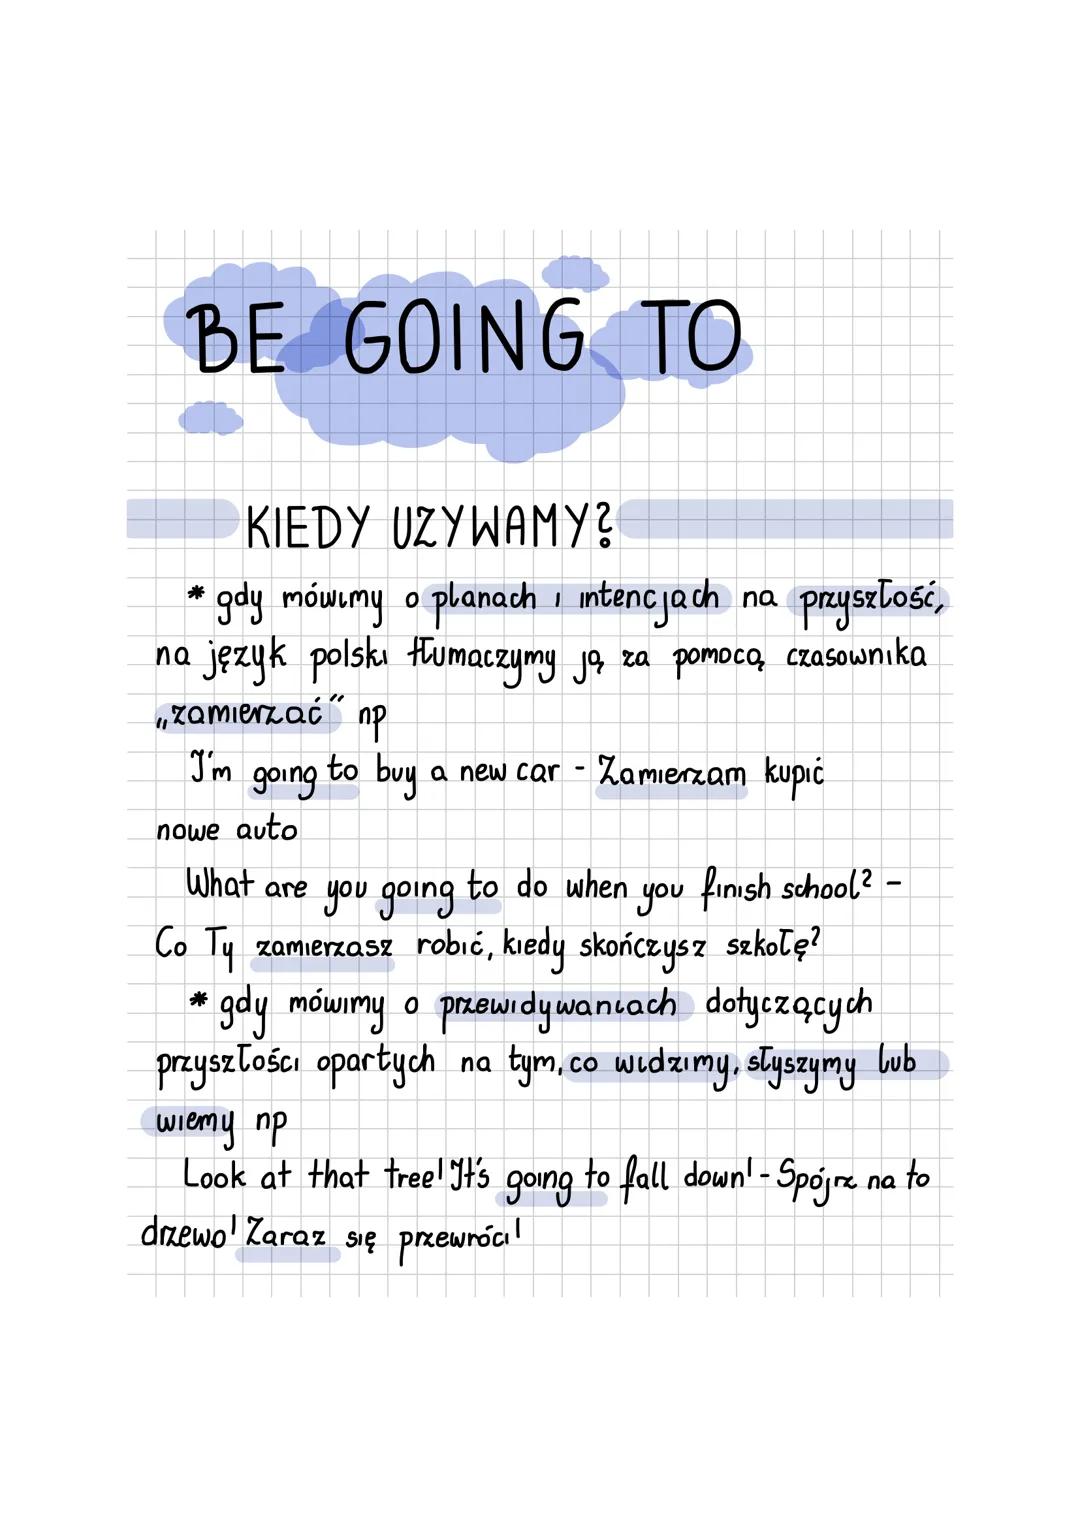 BE GOING TO
KIEDY UŻYWAMY?
* gdy mówimy o planach i intencjach na przyszłość,
na język polski tłumaczymy ją za pomocą czasownika
„zamierzać" np
I'm going to buy a new car - Zamierzam kupić
nowe auto
What are you going to do when you finish school? -
Co Ty zamierzasz robić, kiedy skończysz szkołę?
* gdy mówimy o przewidywaniach dotyczących
przyszłości opartych na tym, co widzimy, słyszymy lub
wiemy np
Look at that tree! It's going to fall down! - Spójrz na to
drzewo! Zaraz się przewróci!